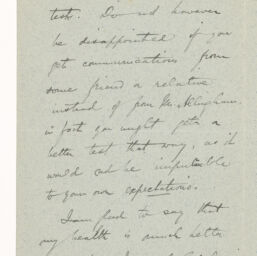 tests. Do not however
be disappointed if you
get communications from
some friend or relative
instead of from Mr.
in fact you might get a
better test that way, as it
would not be imputable
to your own expectations.
I am glad to say that
my health is much better